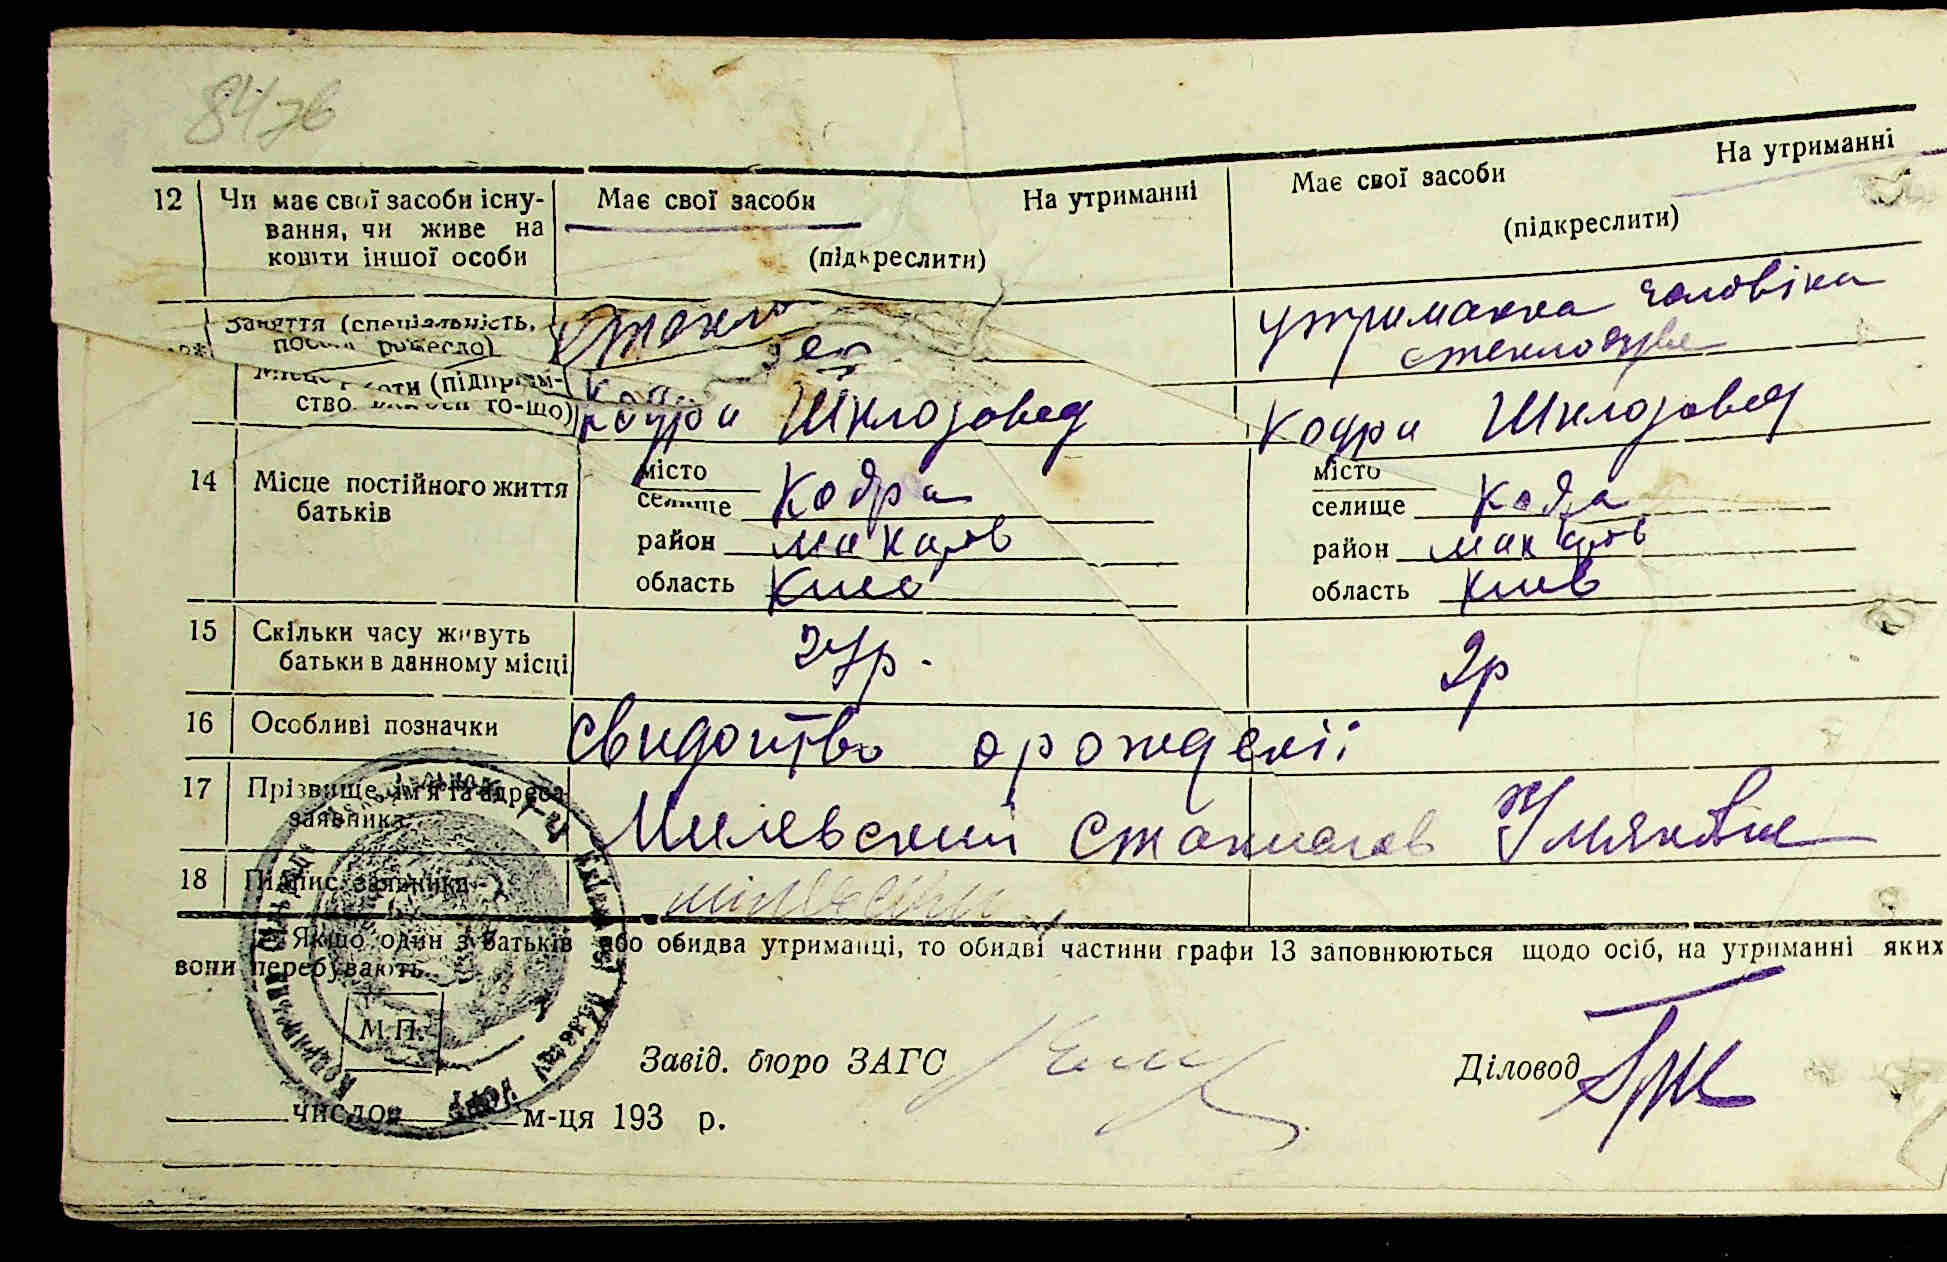 84зв
12 Чи має свої засоби існу- Має свої засоби На утриманні Має свої засоби На утриманні
вання, чи живе на
кошти іншої особи (підкреслити) (підкреслити)
Заняття (спеціальність, утриманка чоловіка
ремесло) стеклодува
(підприєм-
ство то-що) Кодра Шклозавод Кодра Шклозавод
14 Місце постійного життя місто місто
батьків селище Кодра селище Кодра
район Макаров район Макаров
область Киев область Киев
15 Скільки часу живуть 27р. 2р
батьки в данному місці
16 Особливі позначки Свидоцтво о рождении
17 Прізвище, ім'я та адреса Милевский Станислав
заявника
18 Підпис заявника
Якщо один з батьків або обидва утриманці, то обидві частини графи 13 заповнюються щодо осіб, на утриманні яких
вони перебувають.
М.П.
Завід. бюро ЗАГС Діловод
число м-ця 193 р.